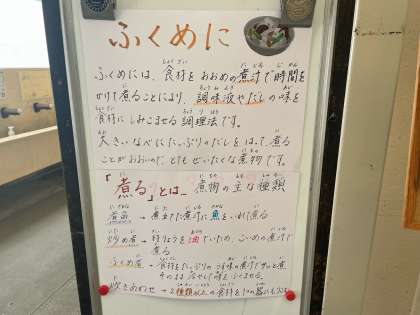 ふくめに
ふくめには、食材をおおめの煮汁で時間を
かけて煮ることにより、調味液やだしの味を
食材にしみこませる調理法です。
大きいなべにたっぷりのだしをはって煮る
ことがおおいので、とてもぜいたくな煮物です。
「煮る」とは… 煮物の主な種類
煮魚 → 煮立てた煮汁に魚をいれて煮る
炒め煮 → 材りょうを油でいため、こいめの煮汁で
煮る
ふくめ煮 → 食材をたっぷりのうす味の煮汁でサッと煮
そのまま冷やして味をふくませる。
炊きあわせ → 2種類以上の食材を1つの器にもる